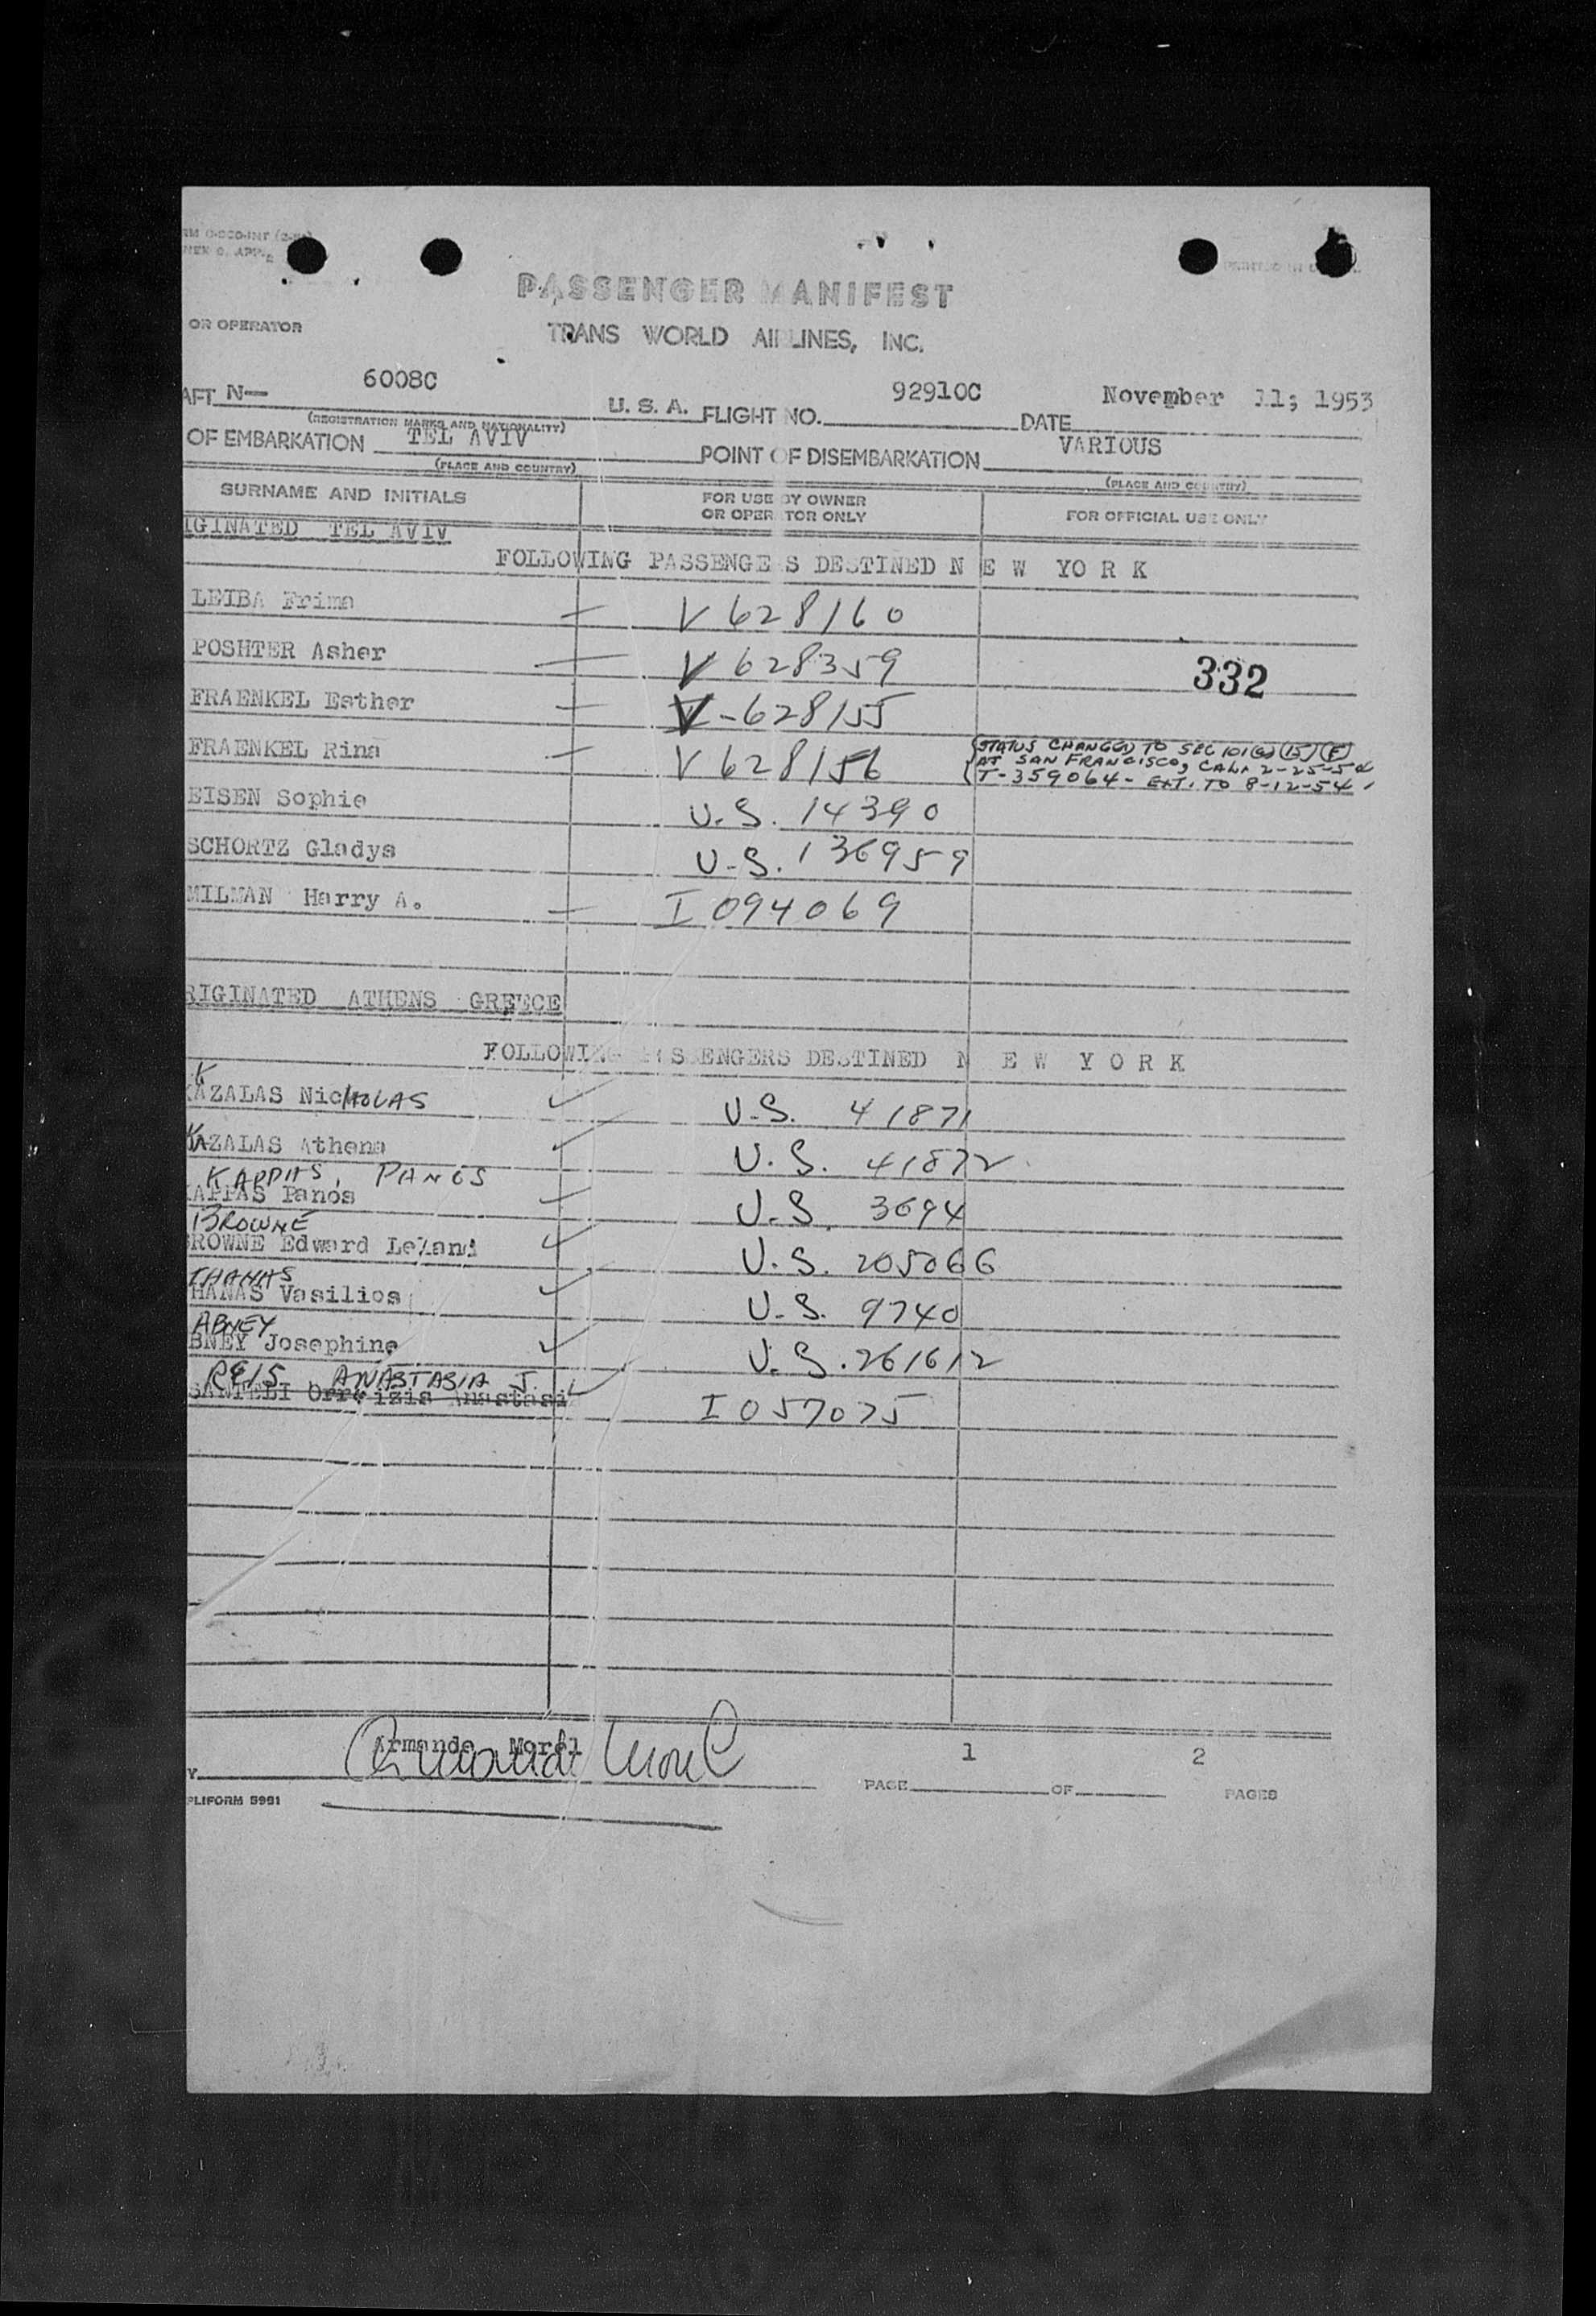 PASSENGER MANIFEST
OR OPERATOR
TRANS WORLD AIRLINES, INC.
AFT N— 6008C U. S. A. FLIGHT NO. 92910C DATE November 11; 1953
(REGISTRATION MARKS AND NATIONALITY)
OF EMBARKATION TEL AVIV POINT OF DISEMBARKATION VARIOUS
(PLACE AND COUNTRY) (PLACE AND COUNTRY)
SURNAME AND INITIALS FOR USE BY OWNER OR OPERATOR ONLY FOR OFFICIAL USE ONLY
IGINATED TEL AVIV
FOLLOWING PASSENGERS DESTINED N E W YO R K
LEIBA Frima — V 628160
POSHTER Asher — V 628359 332
FRAENKEL Esther — V-628155
FRAENKEL Rina — V 628156
STATUS CHANGED TO SEC 101 (a) (15) (F)
AT SAN FRANCISCO, CAL. 2-25-54
T-359064- EXT. TO 8-12-54
EISEN Sophie U.S. 14390
SCHORTZ Gladys U.S. 136959
MILMAN Harry A. — I 094069
RIGINATED ATHENS GREECE
FOLLOWING PASSENGERS DESTINED N E W Y O R K
KAZALAS NicHOLAS ✓ U.S. 41871
KAZALAS Athena ✓ U.S. 41872
KAPPAS, PANOS
APPAS Panos ✓ U.S. 3694
BROWNE
ROWNE Edward Leland ✓ U.S. 205066
THANAS
HANAS Vasilios ✓ U.S. 9740
ABNEY
BNEY Josephine ✓ U.S. 261612
REIS ANASTASIA J. ✓
I 057075
Armande Morel
Armande Morel
Y
PAGE 1 OF 2 PAGES
PLIFORM 5951